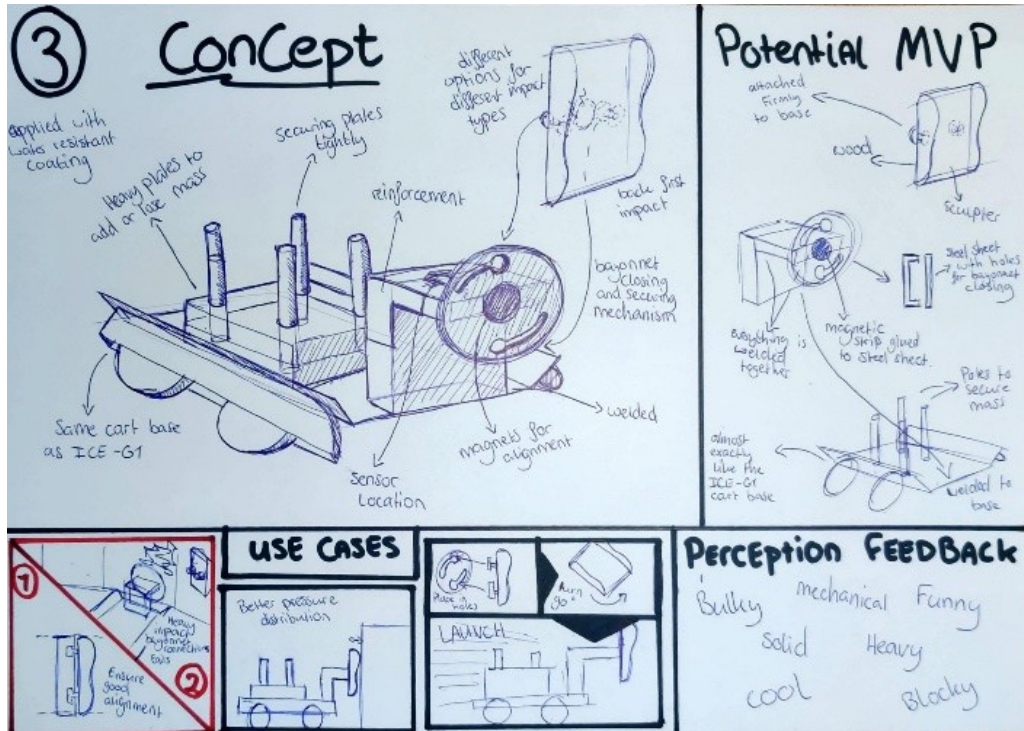 3
Concept
applied with
water resistant
coating
Heavy plates to
add or lose mass
securing plates
tightly
reinforcement
different
options for
different impact
types
back first
impact
bayonnet
closing
and securing
mechanism
welded
magnets for
alignment
Sensor
Location
Same cart base
as ICE-G1
Potential MVP
attached
firmly
to base
wood
Sculpter
Steel sheet
with holes
for bayonnet
closing
Everything is
welded
together
magnetic
strip glued
to steel sheet.
Poles to
secure
mass
almost
exactly
like the
ICE-G1
cart base
welded to
base
1
Heavy
impact
bayonnet
connections
fails
2
Ensure
good
alignment
USE CASES
Better pressure
distribution
Place in
holes
turn
90°
LAUNCH
PERCEPTION FEEDBACK
Bulky
mechanical
Funny
Solid
Heavy
cool
Blocky